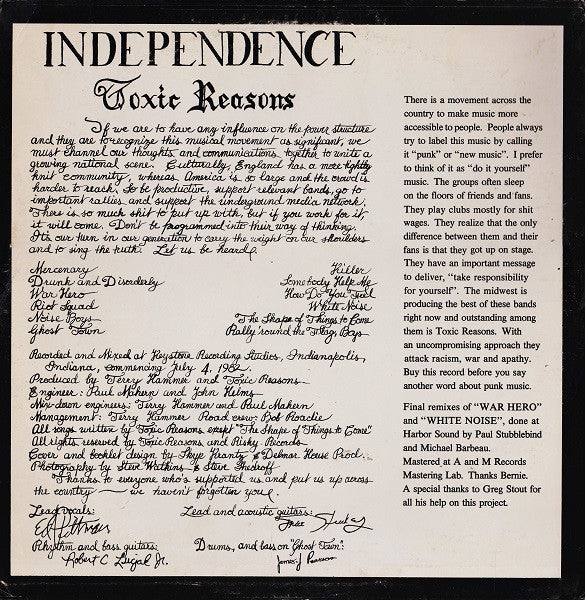 INDEPENDENCE
Toxic Reasons
If we are to have any influence on the power structure
and they are to recognize this musical movement as significant, we
must channel our thoughts and communications together to unite a
growing national scene. Culturally, England has a more tightly
knit community, whereas America is so large and the crowd is
harder to reach. To be productive, support relevant bands, go to
important rallies and support the underground media network.
There is so much shit to put up with, but if you work for it,
it will come. Don't be programmed into their way of thinking.
It's our turn in our generation to carry the weight on our shoulders
and to sing the truth. Let us be heard.
Mercenary
Drunk and Disorderly
War Hero
Riot Squad
Noise Boys
Ghost Town
Killer
Somebody Help Me
How Do You Feel
White Noise
The Shape of Things to Come
Rally 'round the Flag, Boys
Recorded and Mixed at Keystone Recording Studios, Indianapolis,
Indiana, commencing July 4, 1982
Produced by Terry Hammer and Toxic Reasons
Engineer: Paul Mahern and John Helms
Mix-down engineers: Terry Hammer and Paul Mahern
Management: Terry Hammer Road crew: Bob Roadie
All songs written by Toxic Reasons exept "The Shape of Things to Come"
All rights reserved by Toxic Reasons and Risky Records
Cover and booklet design by Skye Krantz & Delmar House Prod.
Photography by Steve Watkins & Steve
Thanks to everyone who's supported us and put us up across
the country — we haven't forgotten you!
Lead vocals:
Ed Pittman
Lead and acoustic guitars:
Rhythm and bass guitars:
Robert C Jr.
Drums, and bass on "Ghost Town":
James J Pearson
There is a movement across the
country to make music more
accessible to people. People always
try to label this music by calling
it "punk" or "new music". I prefer
to think of it as "do it yourself"
music. The groups often sleep
on the floors of friends and fans.
They play clubs mostly for shit
wages. They realize that the only
difference between them and their
fans is that they got up on stage.
They have an important message
to deliver, "take responsibility
for yourself". The midwest is
producing the best of these bands
right now and outstanding among
them is Toxic Reasons. With
an uncompromising approach they
attack racism, war and apathy.
Buy this record before you say
another word about punk music.
Final remixes of "WAR HERO"
and "WHITE NOISE", done at
Harbor Sound by Paul Stubblebind
and Michael Barbeau.
Mastered at A and M Records
Mastering Lab. Thanks Bernie.
A special thanks to Greg Stout for
all his help on this project.